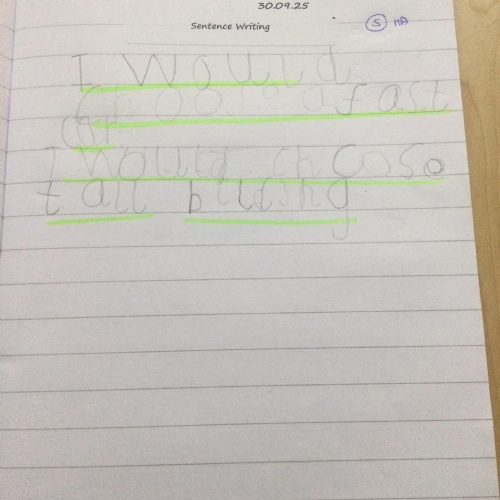 30.09.25
Sentence Writing
S HA
I would
choose a fast
car
I would choose
tall bilding